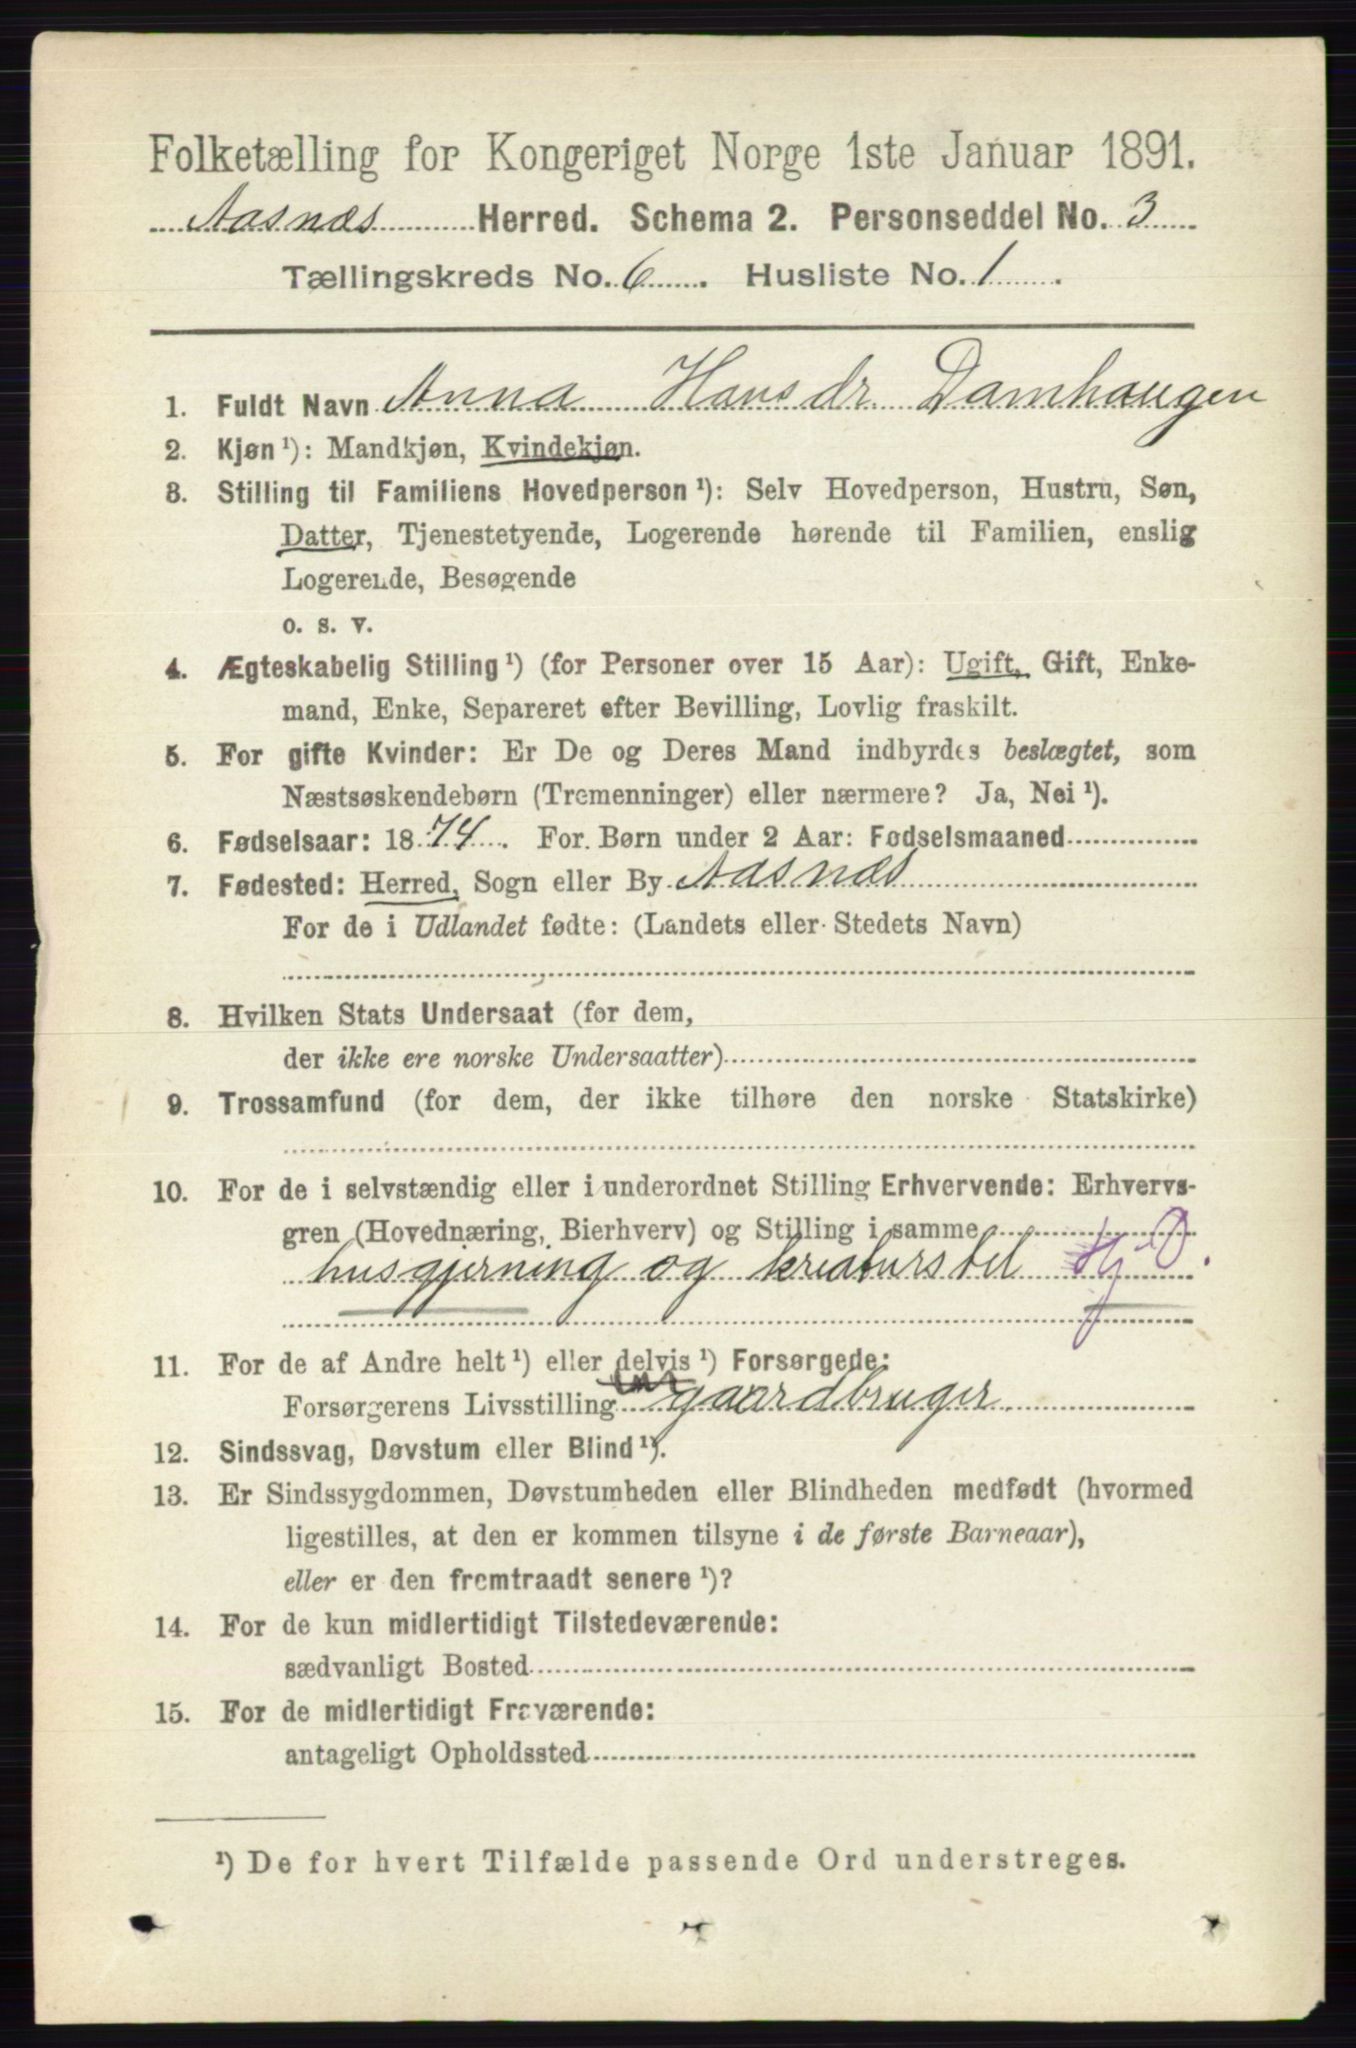 Folketælling for Kongeriget Norge 1ste Januar 1891.
Aasnæs Herred. Schema 2. Personseddel No. 3
Tællingskreds No. 6. Husliste No. 1.
1. Fuldt Navn Anna Hansdr. Damhaugen
2. Kjøn ¹): Mandkjøn, Kvindekjøn.
3. Stilling til Familiens Hovedperson ¹): Selv Hovedperson, Hustru, Søn,
Datter, Tjenestetyende, Logerende hørende til Familien, enslig
Logerende, Besøgende
o. s. v.
4. Ægteskabelig Stilling ¹) (for Personer over 15 Aar): Ugift, Gift, Enke-
mand, Enke, Separeret efter Bevilling, Lovlig fraskilt.
5. For gifte Kvinder: Er De og Deres Mand indbyrdes beslægtet, som
Næstsøskendebørn (Tremenninger) eller nærmere? Ja, Nei ¹).
6. Fødselsaar: 1874. For Børn under 2 Aar: Fødselsmaaned
7. Fødested: Herred, Sogn eller By Aasnæs
For de i Udlandet fødte: (Landets eller Stedets Navn)
8. Hvilken Stats Undersaat (for dem,
der ikke ere norske Undersaatter)
9. Trossamfund (for dem, der ikke tilhøre den norske Statskirke)
10. For de i selvstændig eller i underordnet Stilling Erhvervende: Erhvervs-
gren (Hovednæring, Bierhverv) og Stilling i samme
husgjerning og kreaturstel HjD.
11. For de af Andre helt ¹) eller delvis ¹) Forsørgede:
Forsørgerens Livsstilling gaardbruger
12. Sindssvag, Døvstum eller Blind ¹).
13. Er Sindssygdommen, Døvstumheden eller Blindheden medfødt (hvormed
ligestilles, at den er kommen tilsyne i de første Barneaar),
eller er den fremtraadt senere ¹)?
14. For de kun midlertidigt Tilstedeværende:
sædvanligt Bosted
15. For de midlertidigt Fraværende:
antageligt Opholdssted
¹) De for hvert Tilfælde passende Ord understreges.